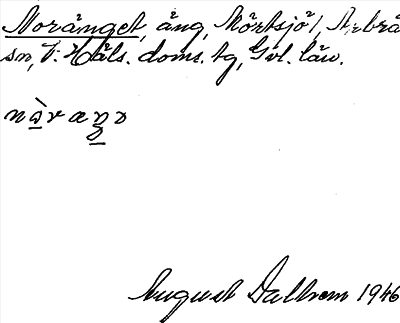 Norånget, äng, Mörtsjö, Arbrå
sn, V. Häls. doms. tg, Gvl. län.
August Dallrom 1946